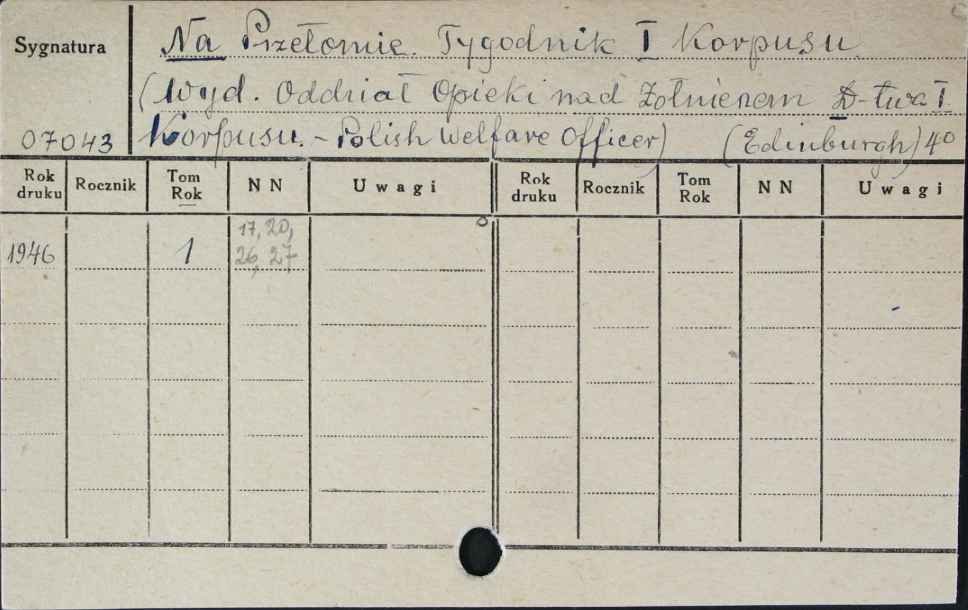 Sygnatura
Na Przełomie. Tygodnik I Korpusu
(Wyd. Oddział Opieki nad Żołnierzem D-twa I.
07043 Korpusu. - Polish Welfare Officer) (Edinburgh) 4°
Rok druku Rocznik Tom Rok NN Uwagi Rok druku Rocznik Tom Rok NN Uwagi
17, 20,
1946 1 26, 27